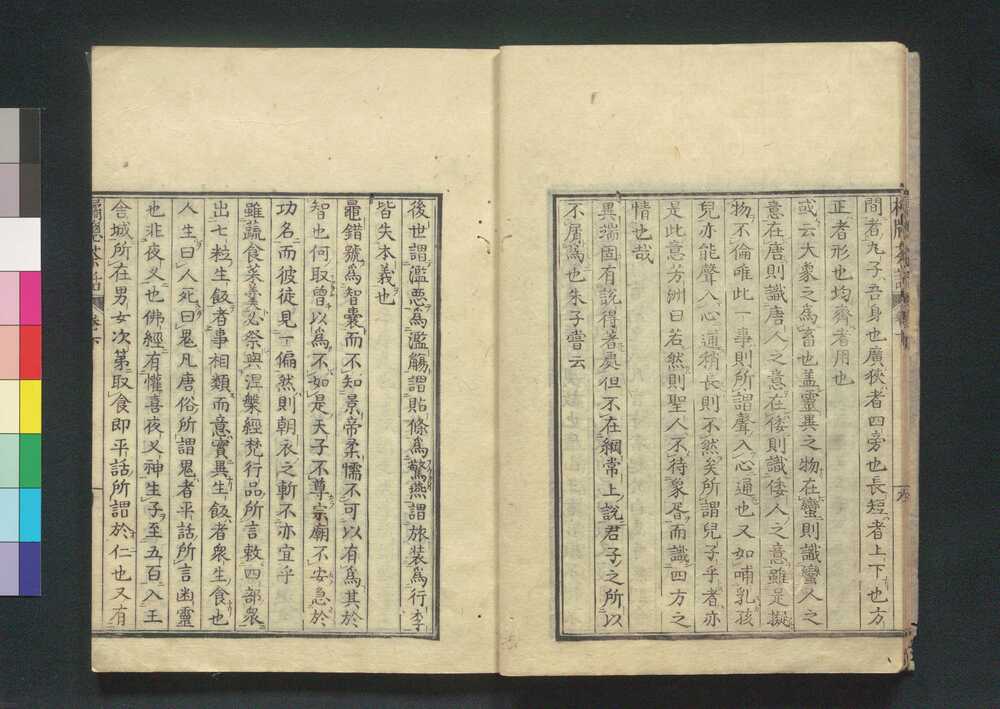 間者九子吾身也廣狹者四旁也長短者上下也方
正者形也均齊者用也
或云大象之為畜也蓋靈異之物在蠻則識蠻人之
意在唐則識唐人之意在倭則識倭人之意雖是擬
物不倫唯此一事則所謂聲入心通也又如哺乳孩
兒亦能聲入心通稍長則不然矣所謂兒子乎者亦
是此意芳洲曰若然則聖人不待象胥而識四方之
情也哉
異端固有說得著處但不在綱常上說君子之所以
不屑為也朱子嘗云
後世謂濫惡為濫觴謂貼條為驚燕謂旅装為行李
皆失本義也
鼂錯號為智囊而不知景帝柔懦不可以有為其於
智也何取曾以為不如是天子不尊宗廟不安急於
功名而彼徒見一偏然則朝衣之斬不亦宜乎
雖蔬食菜羹必祭與涅槃經梵行品所言敕四部衆
出七粒生飯者事相類而意實異生飯者衆生食也
人生曰人死曰鬼凡唐俗所謂鬼者平話所言幽靈
也非夜叉也佛經有懽喜夜叉神生子至五百入王
舍城所在男女次第取食即平話所謂於仁也又有
橘窓茶話 卷下